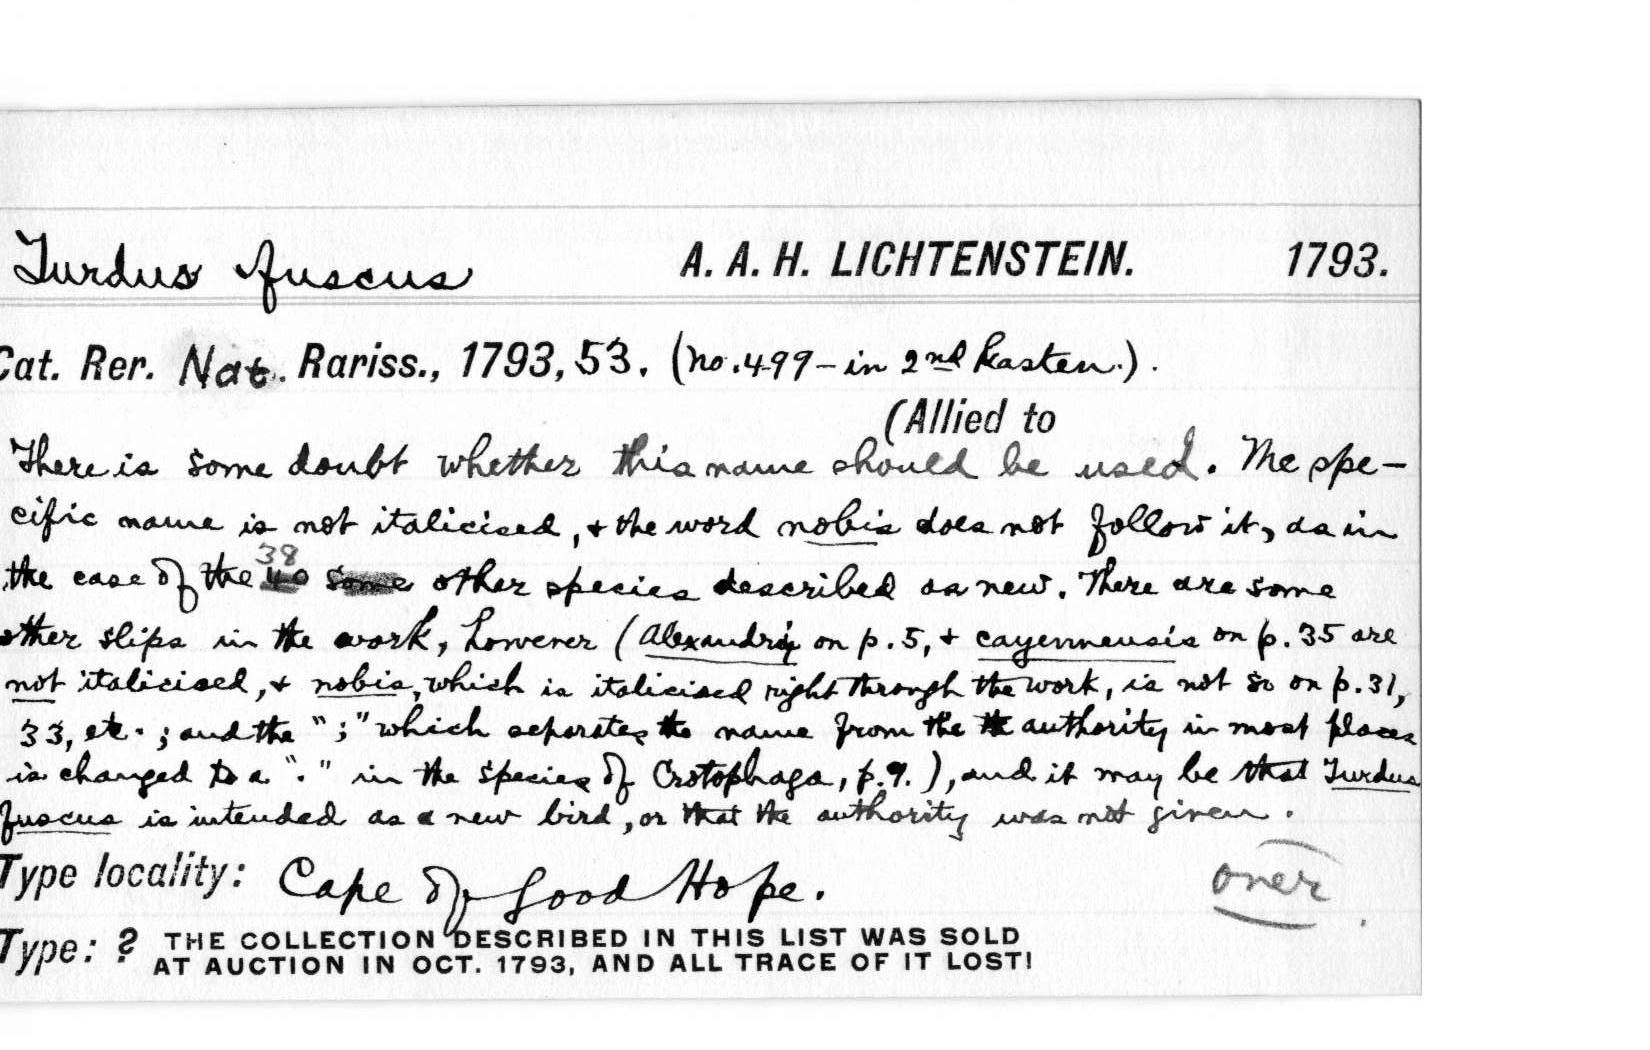 Turdus fuscus A. A. H. LICHTENSTEIN. 1793.
Cat. Rer. Nat. Rariss., 1793, 53. (no. 499 – in 2nd Kasten.).
(Allied to
There is some doubt whether this name should be used. The spe-
cific name is not italicised, & the word nobis does not follow it, as in
the case of the 38 other species described as new. There are some
other slips in the work, however (Alexandri on p. 5, & cayennensis on p. 35 are
not italicised, & nobis, which is italicised right through the work, is not so on p. 31,
33, etc. ; and the ";" which separates the name from the authority in most places
is changed to a "." in the species of Crotophaga, p. 9.), and it may be that Turdus
fuscus is intended as a new bird, or that the authority was not given.
Type locality: Cape of Good Hope.
over
Type: ? THE COLLECTION DESCRIBED IN THIS LIST WAS SOLD
AT AUCTION IN OCT. 1793, AND ALL TRACE OF IT LOST!